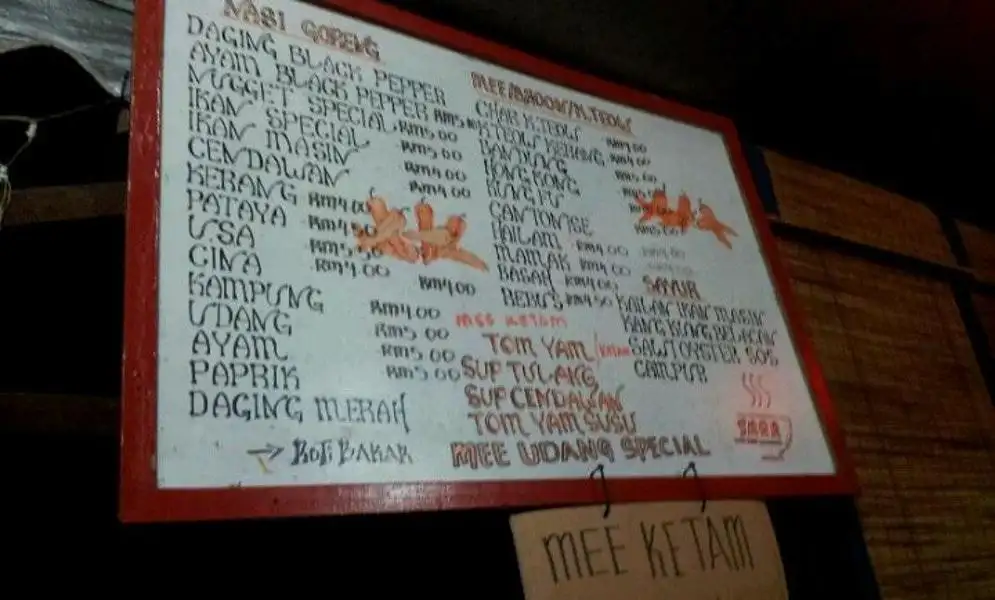 NASI GORENG
DAGING BLACK PEPPER
AYAM BLACK PEPPER
NUGGET SPECIAL RM5.00
IKAN SPECIAL RM5.00
IKAN MASIN RM5.00
CENDAWAN RM4.00
KERANG RM4.00
PATAYA RM4.50
USA RM5.50
CINA RM4.00
KAMPUNG RM4.00
UDANG RM4.00
AYAM RM5.00
PAPRIK RM5.00
DAGING MERAH RM5.00
→ ROTI BAKAR
MEE/BIHOON/K.TEOW
CHAR K.TEOW
K.TEOW KERANG RM4.00
BANDUNG RM4.00
HONG KONG RM5.00
KUNG FU
CANTONISE RM5.00
HAILAM RM4.00
MAMAK RM4.00
BASAH RM4.00
REBUS RM4.50
MEE KETAM
TOM YAM
SUP TULANG
SUP CENDAWAN
TOM YAM SUSU
MEE UDANG SPECIAL
SAYUR
KAILAN IKAN MASIN
KANGKUNG BELACAN
SAWI OYSTER SOS
CAMPUR
MEE KETAM